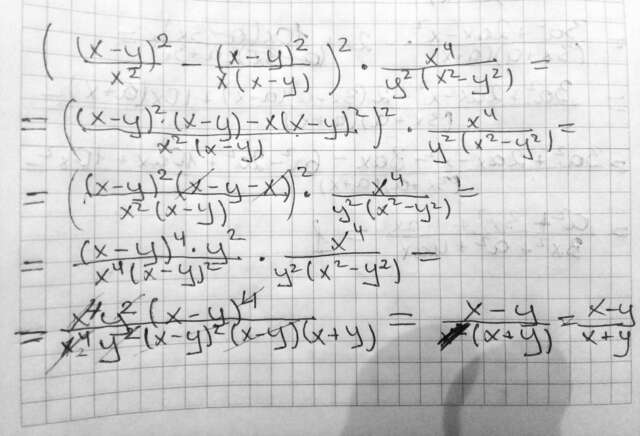 ( (x-y)²/x² - (x-y)²/x(x-y) )² · x⁴/y²(x²-y²) =
= ( (x-y)²·(x-y)-x(x-y)²/x²(x-y) )² · x⁴/y²(x²-y²) =
= ( (x-y)²(x-y-x)/x²(x-y) )² · x⁴/y²(x²-y²) =
= (x-y)⁴·y²/x⁴(x-y)² · x⁴/y²(x²-y²) =
= x⁴y²(x-y)⁴/x⁴y²(x-y)²(x-y)(x+y) = x-y/(x+y) = x-y/x+y